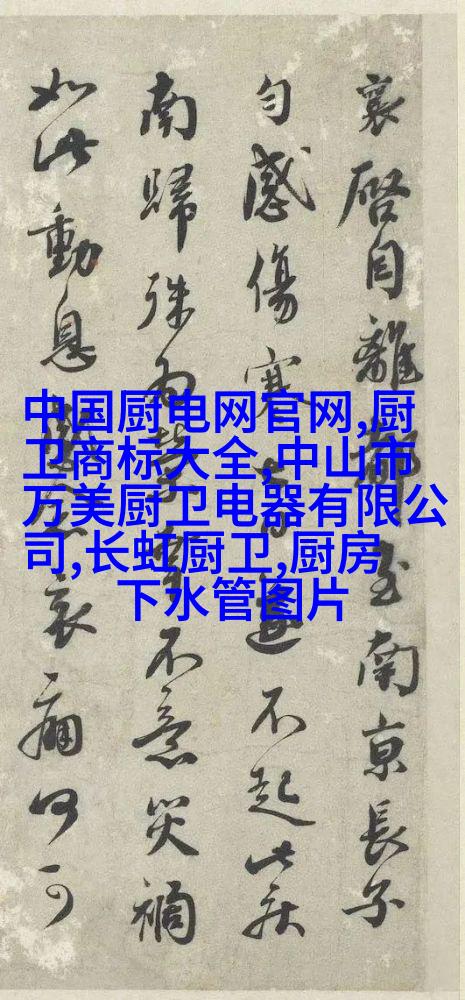 中国厨电网官网,厨
卫商标大全,中山市
万美厨卫电器有限公
司,长虹厨卫,厨房
下水管图片
襄啓自離都至南京長子
匀感傷寒遂不起此疾
南歸殊爲不意災禍
如此動息哀痛何可